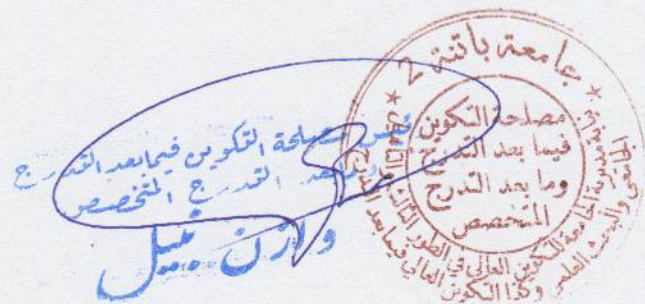 رئيس مصلحة التكوين فيما بعد التدرج
وما بعد التدرج المتخصص
وازن نبيل
* جامعة باتنة 2 *
مصلحة التكوين
فيما بعد التدرج
وما بعد التدرج
المتخصص
نيابة مديرية الجامعة للتكوين العالي في الطور الثالث
والبحث العلمي وكذا التكوين العالي فيما بعد التدرج